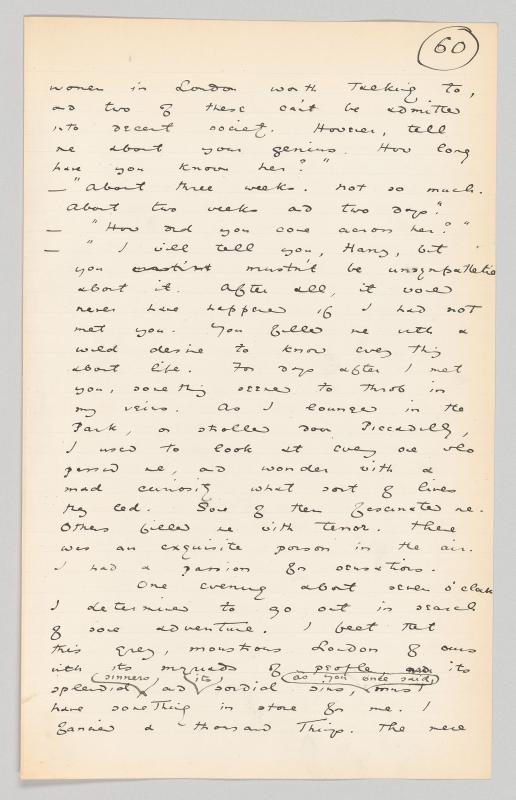 60
women in London worth talking to,
and two of these can't be admitted
into decent society. However, tell
me about your genius. How long
have you known her?"
— "About three weeks. not so much.
About two weeks and two days."
— "How did you come across her?"
— "I will tell you, Harry, but
you mustn't be unsympathetic
about it. After all, it would
never have happened if I had not
met you. You filled me with a
wild desire to know every thing
about life. For days after I met
you, something seemed to throb in
my veins. As I lounged in the
Park, or strolled down Piccadilly,
I used to look at every one who
passed me, and wonder with a
mad curiosity what sort of lives
they led. Some of them fascinated me.
Others filled me with terror. There
was an exquisite poison in the air.
I had a passion for sensations.
One evening about seven o'clock
I determined to go out in search
of some adventure. I felt that
this grey, monstrous London of ours
with its myriads of people, its
sinners its as you once said,
splendid and sordid sins, must
have something in store for me. I
fancied a thousand things. The mere